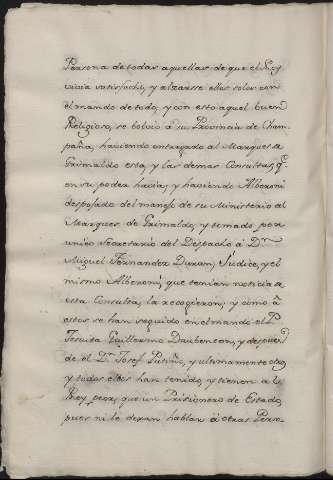 Persona de todas aquellas de que el Rey
vivia satisfecho, y alzarse ellos solos con
el mando de todo, y con esto aquel buen
Religioso, se bolvió a su Provincia de Cham-
paña, haviendo entregado al Marques de
Grimaldo esta, y las demas Consultas, q.e
en su poder havia, y haviendo Alberoni
despojado del manejo de su Ministerio al
Marques de Grimaldo, y tomado por
unico Secretario del Despacho á D.n
Miguel Fernandez Duran, Judice, y el
mismo Alberoni, que tenian noticia de
esta Consulta, la recogieron; y como á
estos se han seguido en el mando el P.
Jesuita Guillermo Daubenton, y despues
de el D.n Josef Patiño, y ultimamente otro,
y todos ellos han tenido, y tienen a el
Rey peor, que un Prisionero de Estado,
pues ni le dexan hablar á otras Perso-